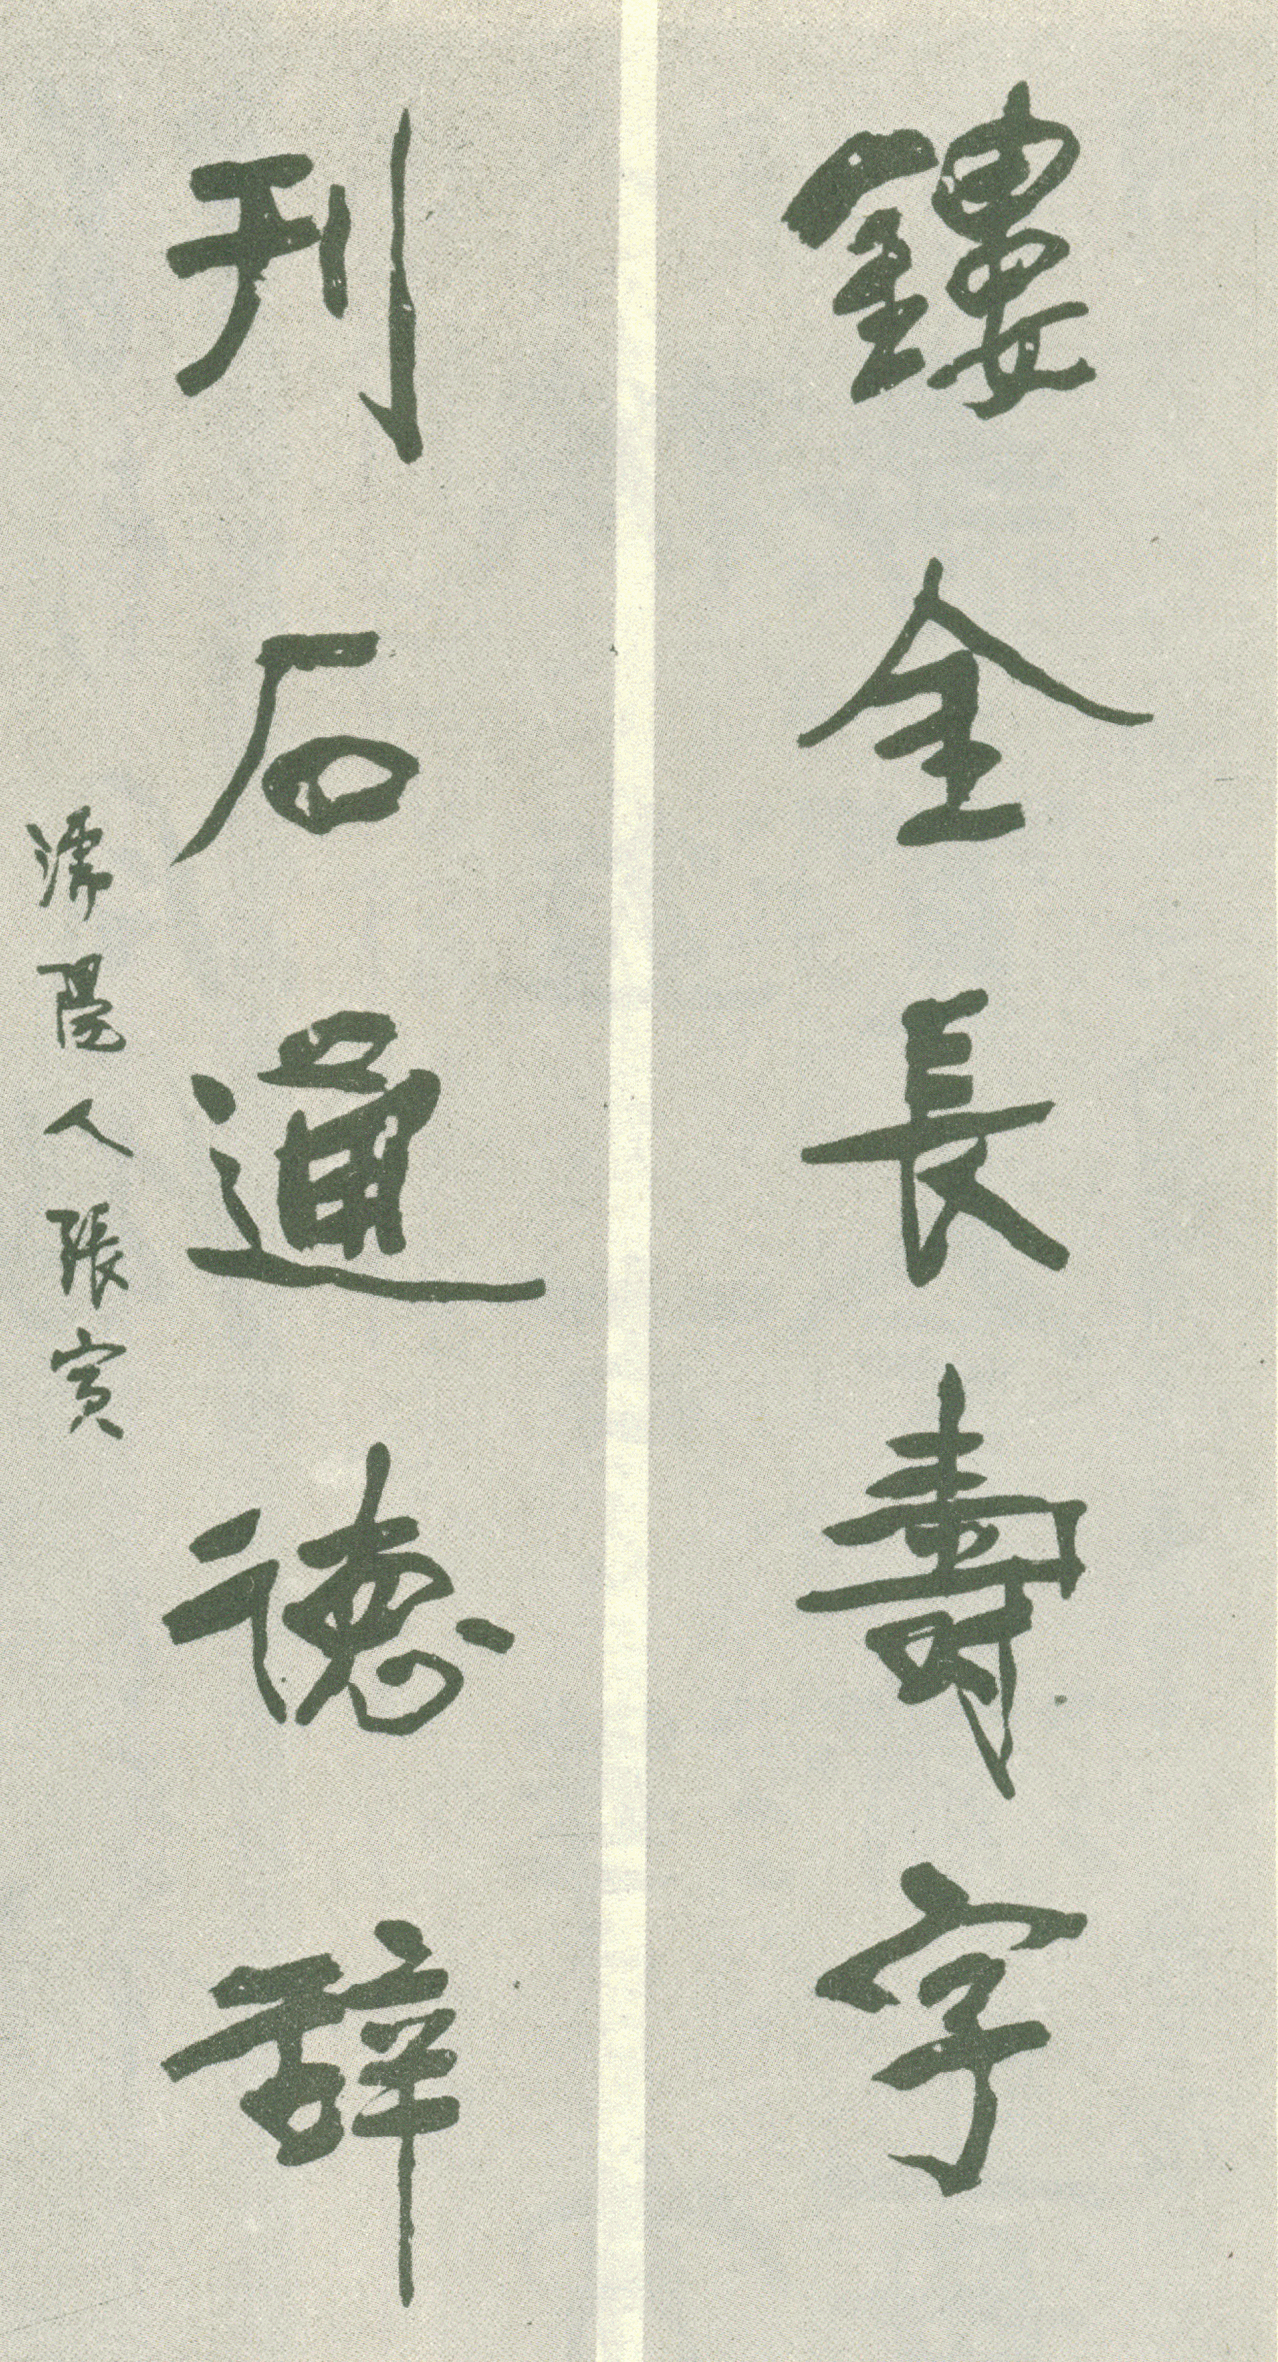 鏤金長壽字
刊石通德辭
溧陽人張寅